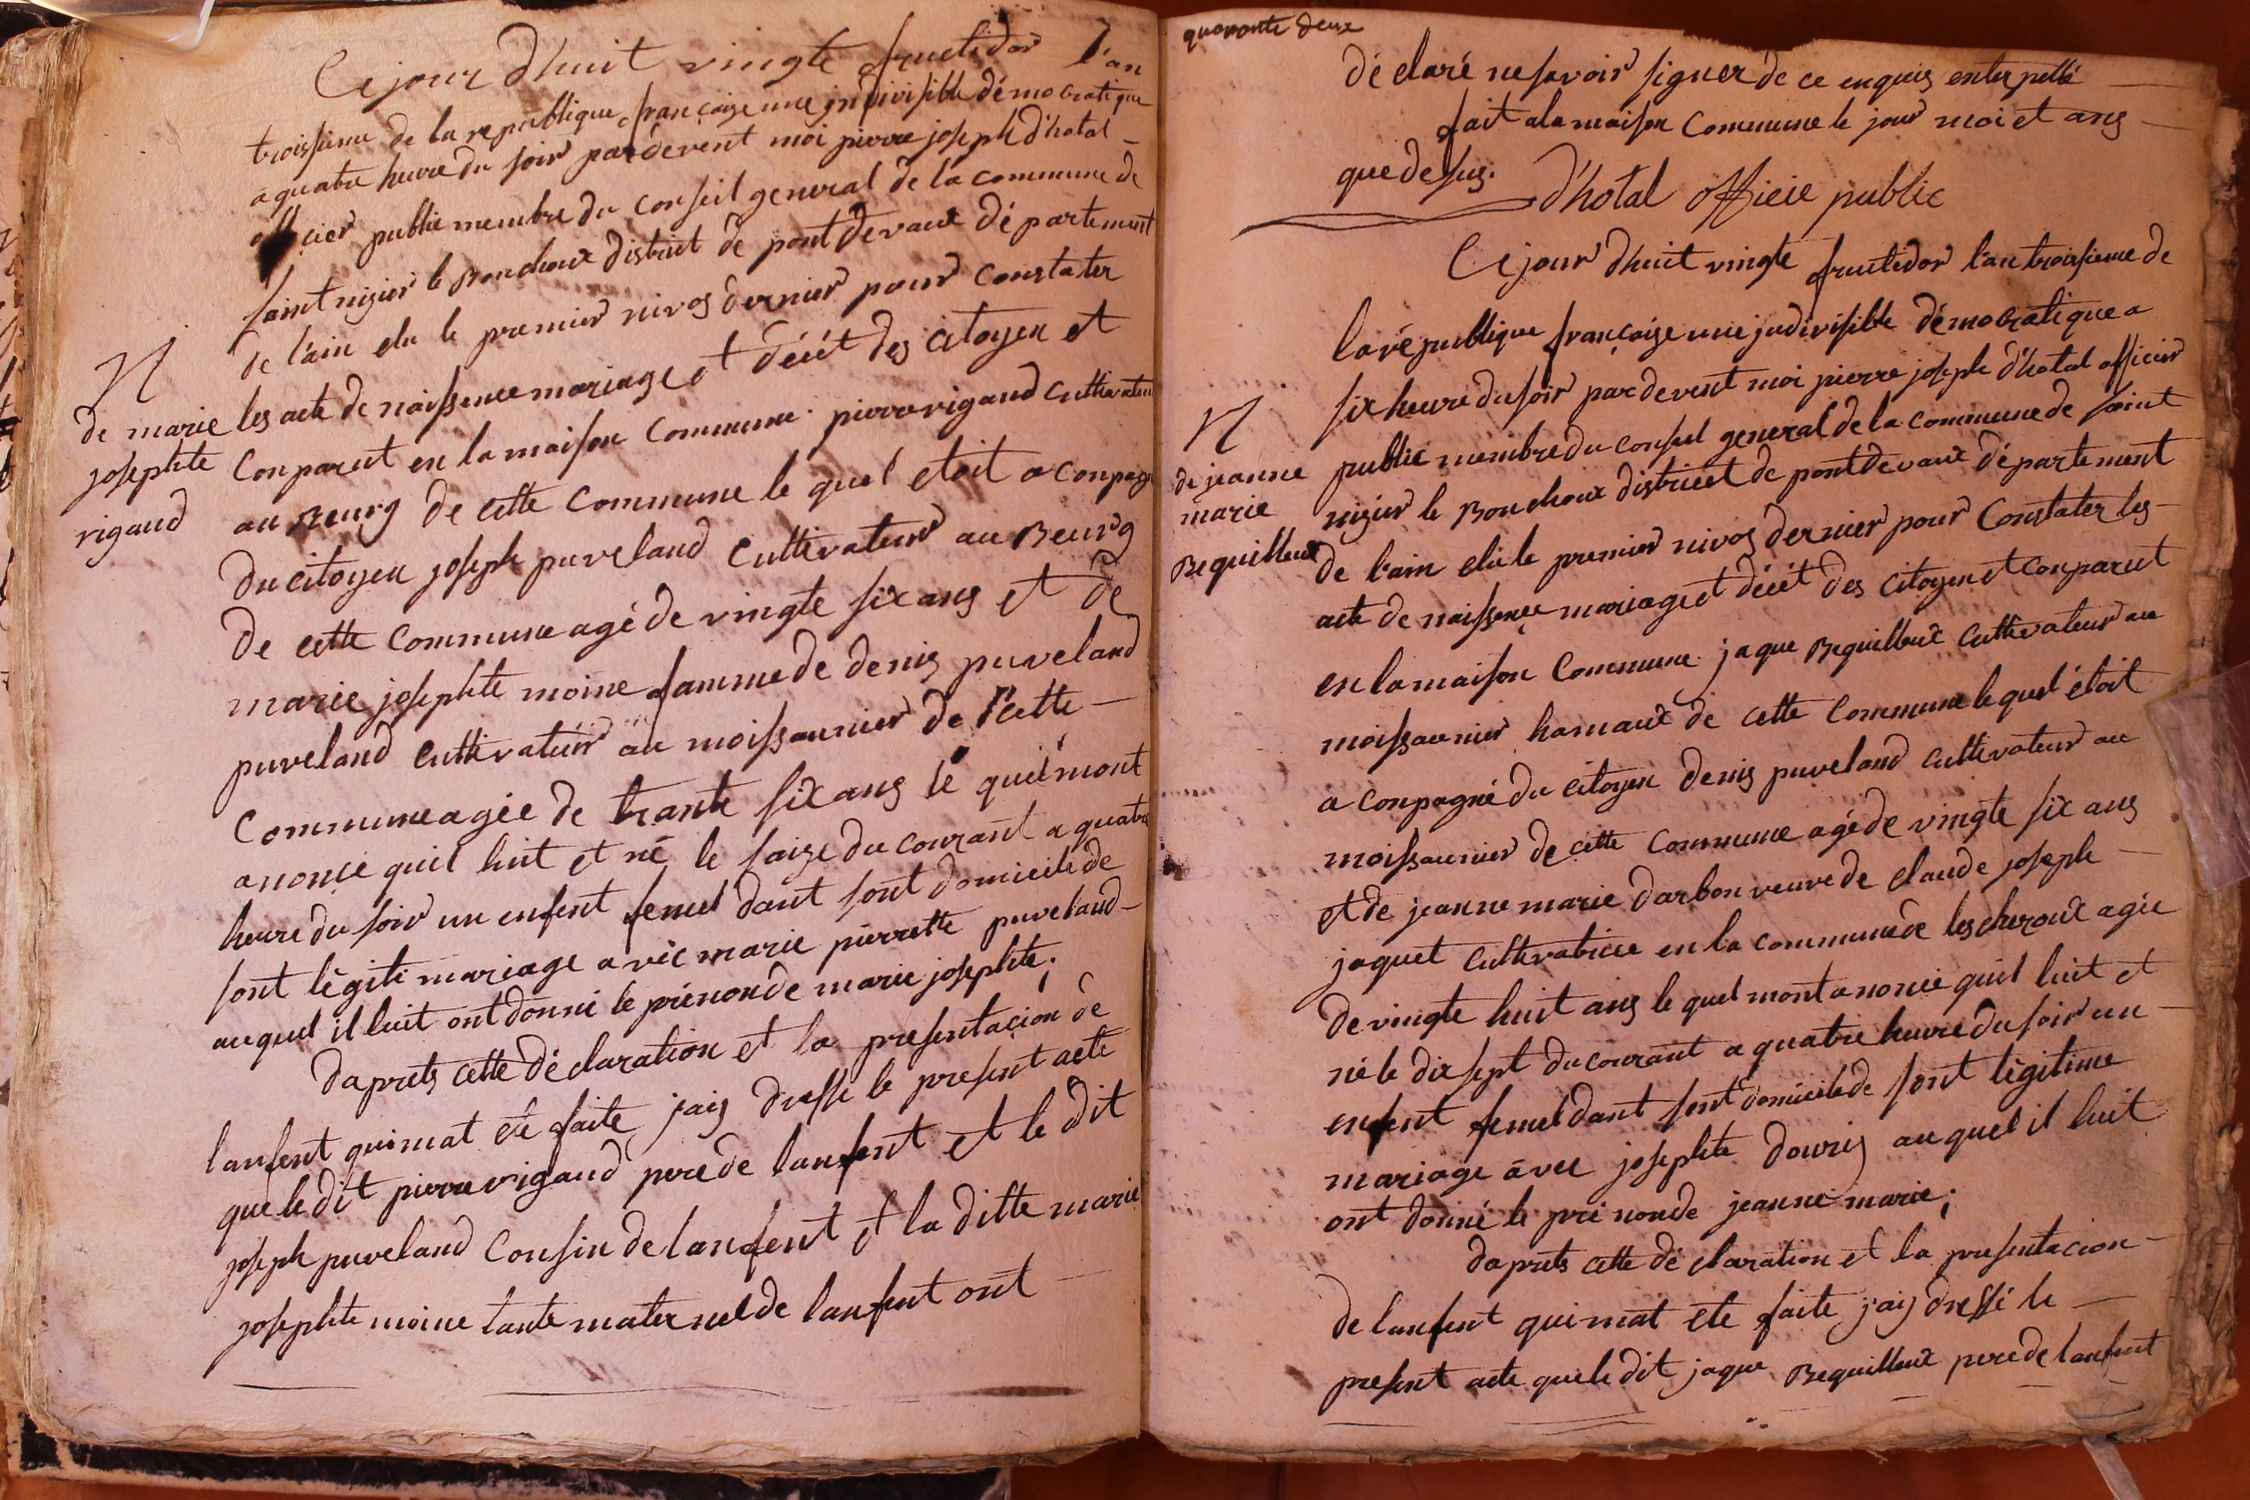 Cejour dhuit vingte fructidor l'an
troissieme de la republique françaize une indivisible démocratique
a quatre heure du soir pardevent moi pierre joseph d'hotal
officier public membre du conseil general de la commune de
saint nizier le Bouchoux district de pont devaux département
de l'ain elu le premier nivos dernier pour constater
les acte de naissence mariage et décét des citoyen et
conparut en la maison commune pierre rigaud cultivateur
au Beurg de cette commune le quel etoit a conpagné
du citoyen joseph puveland cultivateur au Beurg
de cette commune agé de vingte six ans et de
marie josephte moine famme de denis puveland
puveland cultivateur au moissaunier de cette
commune agée de trante six ans le quel mont
anoncé quil huit et né le saize du courant a quatre
heure du soir un enfent femel dant sont domicile de
sont légiti mariage avéc marie pierrette puveland
auquel il luit ont donné le prénon de marie josephte;
daprets cette déclaration et la presentacion de
lanfent qui mat été faite jais dressé le present acte
que le dit pierre rigaud pere de lanfent et le dit
joseph puveland cousin de lanfent et la ditte marie
josephte moine tante maternel de lanfent ont
N
de marie
josephte
rigaud
quarante deux
déclaré ne savoir signer de ce enquis enterpellé
fait a la maison commune le jour moi et ans
que desus.
d'hotal officie public
Cejour dhuit vingte fructidor l'an troisieme de
la république françaize une judivisible démocratique a
six heure du soir pardevent moi pierre joseph d'hotal officier
public membre du conseil general de la commune de saint
nizier le Bouchoux districet de pont devaux département
de l'ain elu le premier nivos dernier pour constater les
acte de naissence mariage et décét des citoyen et conparut
en la maison commune jaque Bequilleux cultivateur au
moissaunier hamaux de cette commune le quel étoit
a conpagné du citoyen denis puveland cultivateur au
moissaunier de cette commune agé de vingte six ans
et de jeanne marie darbon veuve de claude joseph
jaquet cultivatrice en la commune de lescheroux agée
de vingte huit ans le quel mont anoncé quil luit et
né le dix sept du courant a quatre heure du soir un
enfent femel dant sont domicile de sont légitime
mariage avec josephte douris au quel il luit
ont donné le pré non de jeanne marie;
daprets cette déclaration et la presentacion
de lanfent qui mat été faite j'ais dressé le
present acte que le dit jaque Bequilleux pere de lanfent
N
de jeanne
marie
Bequilleux